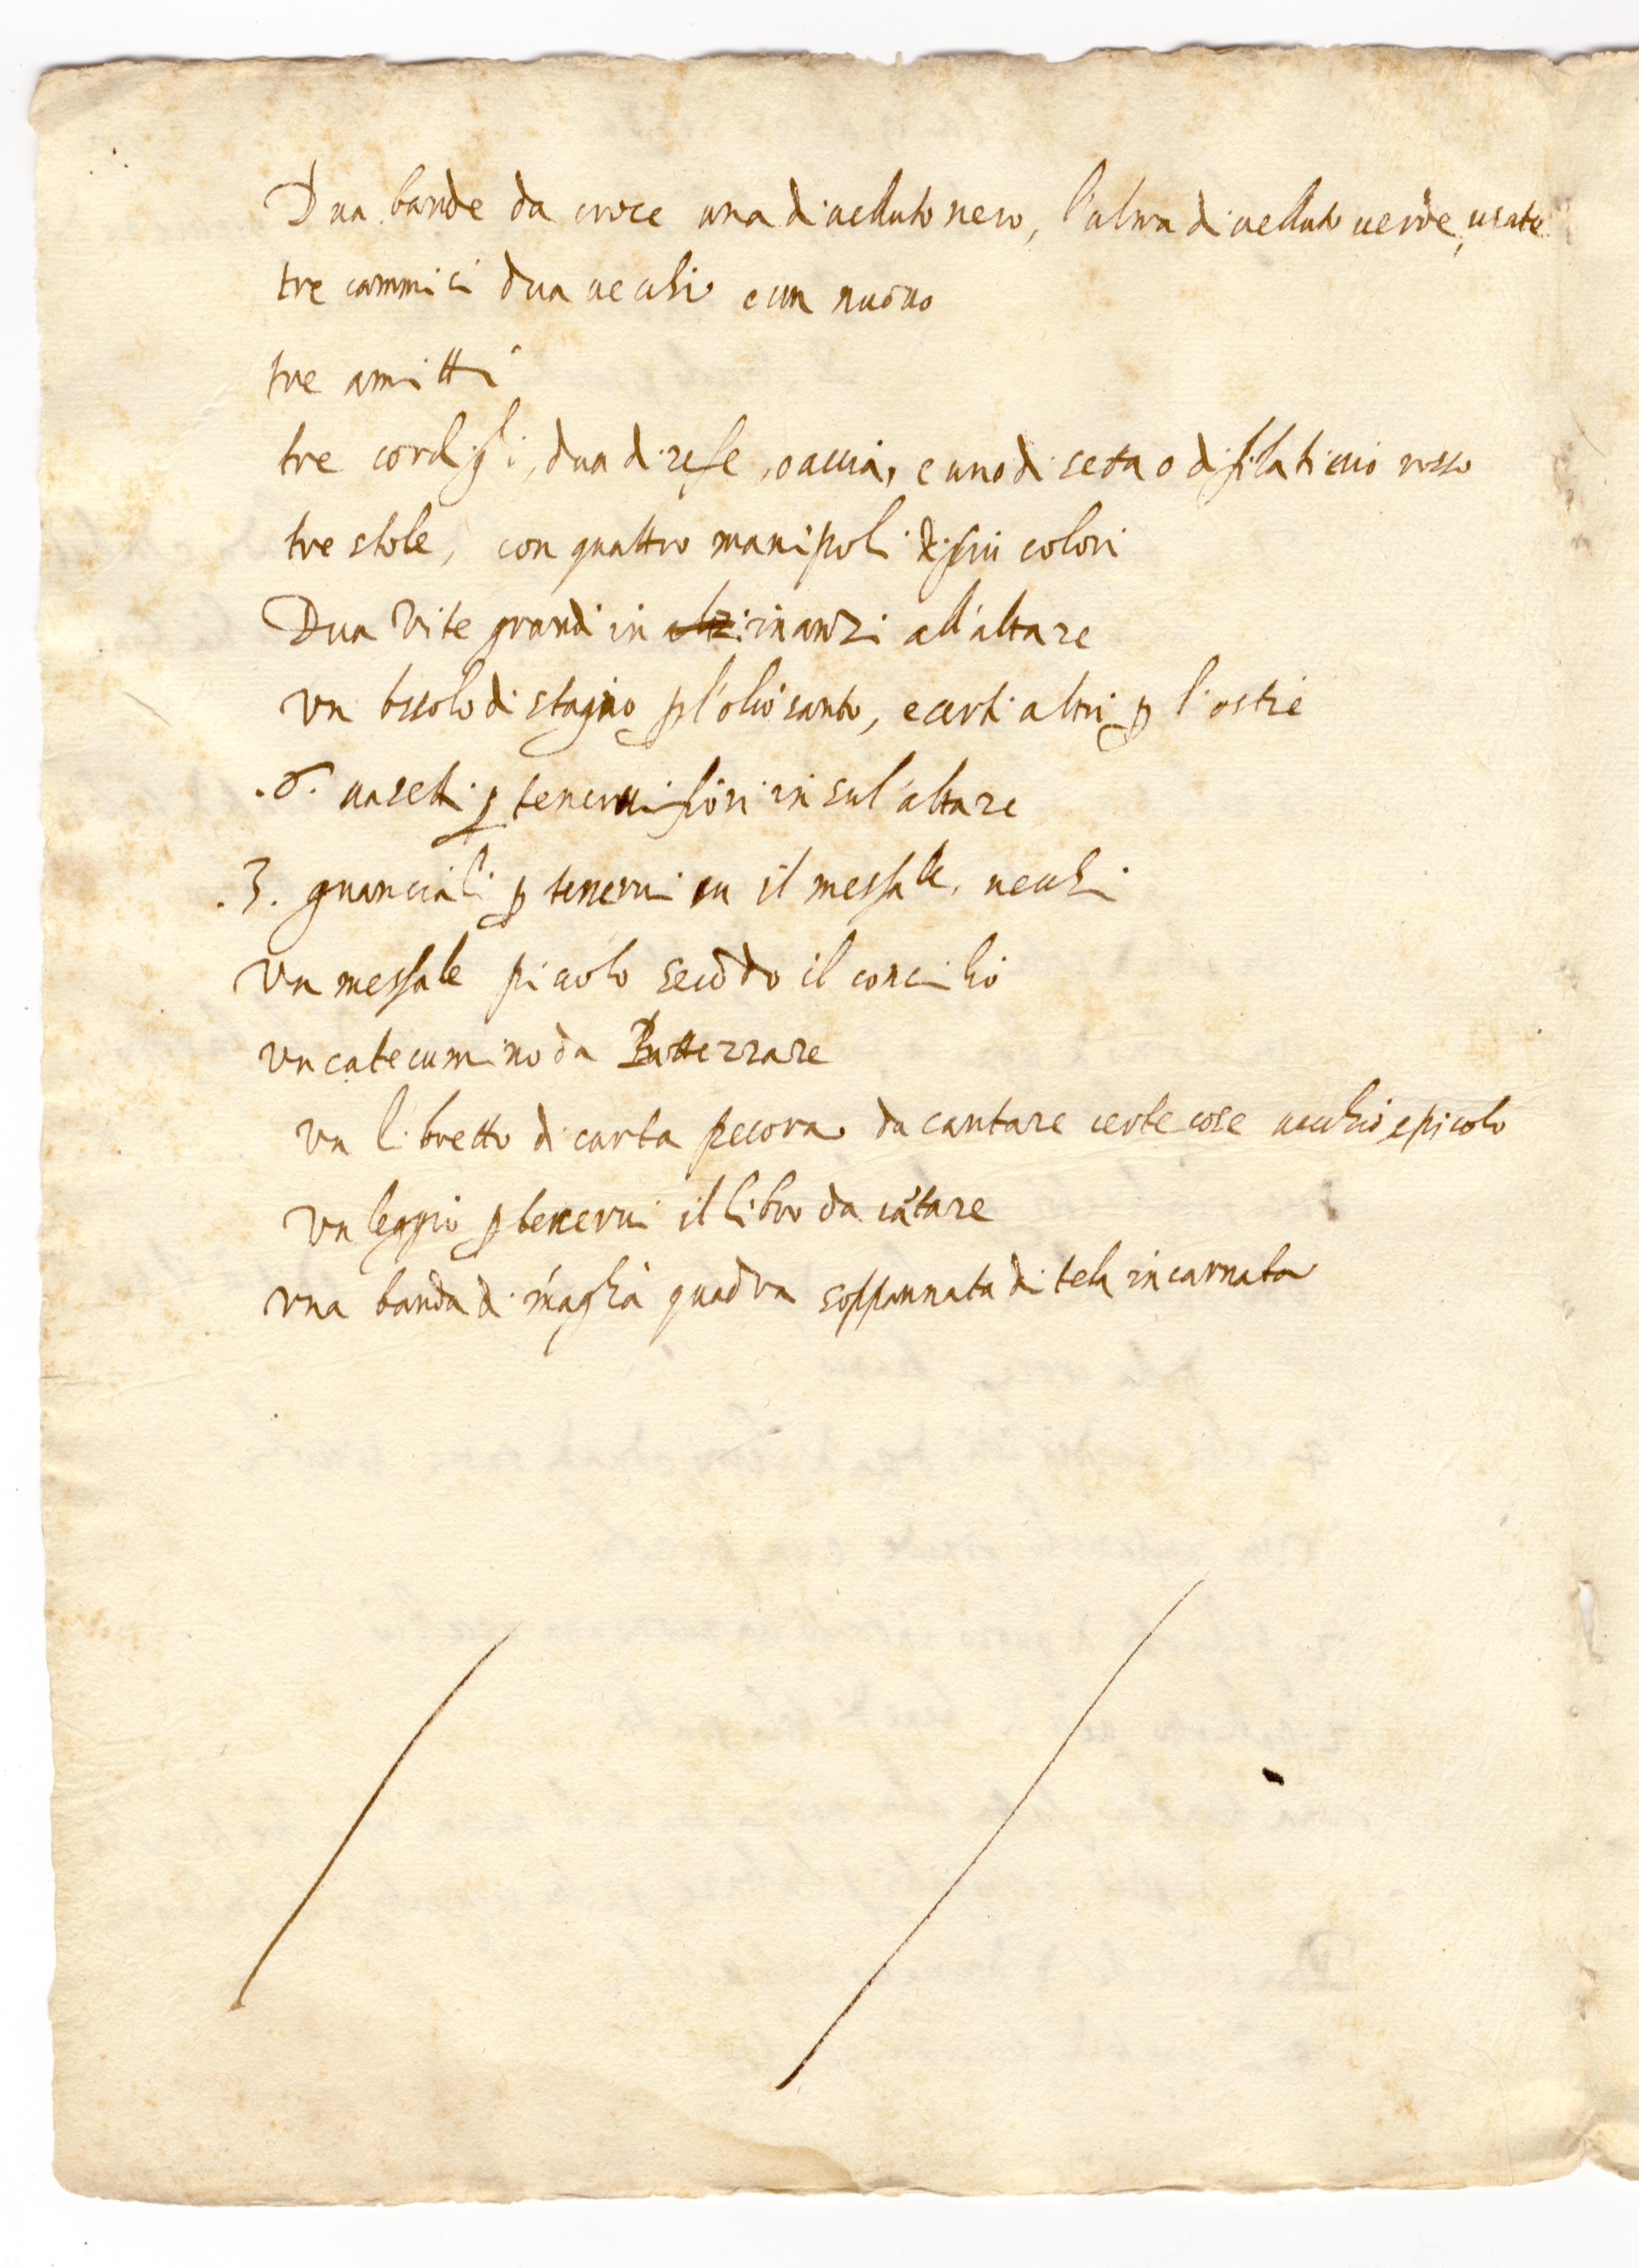 Dua bande da croce una di uelluto nero, l'altra di uelluto uerde, usate
tre cammici dua uecchi e un nuouo
tre amitti
tre cordigli, dua di refe, o accia, e uno di seta o di filaticcio rosso
tre stole, con quattro manipoli di piu colori
Dua Vite grandi in inanzi all'altare
un bssolo di stagno p l'olio santo, e certi altri p l'ostie
.6. uasetti p tenerui fiori in sul'altare
.3. guanciali p tenerui su il messale, uecchi
Vn messale picolo secōdo il concilio
un catecumino da Battezzare
un libretto di carta pecora da cantare certe cose uecchio e picolo
un leggio p tenerui il libro da cātare
una banda di maglia quadra soppannata di tela incarnata